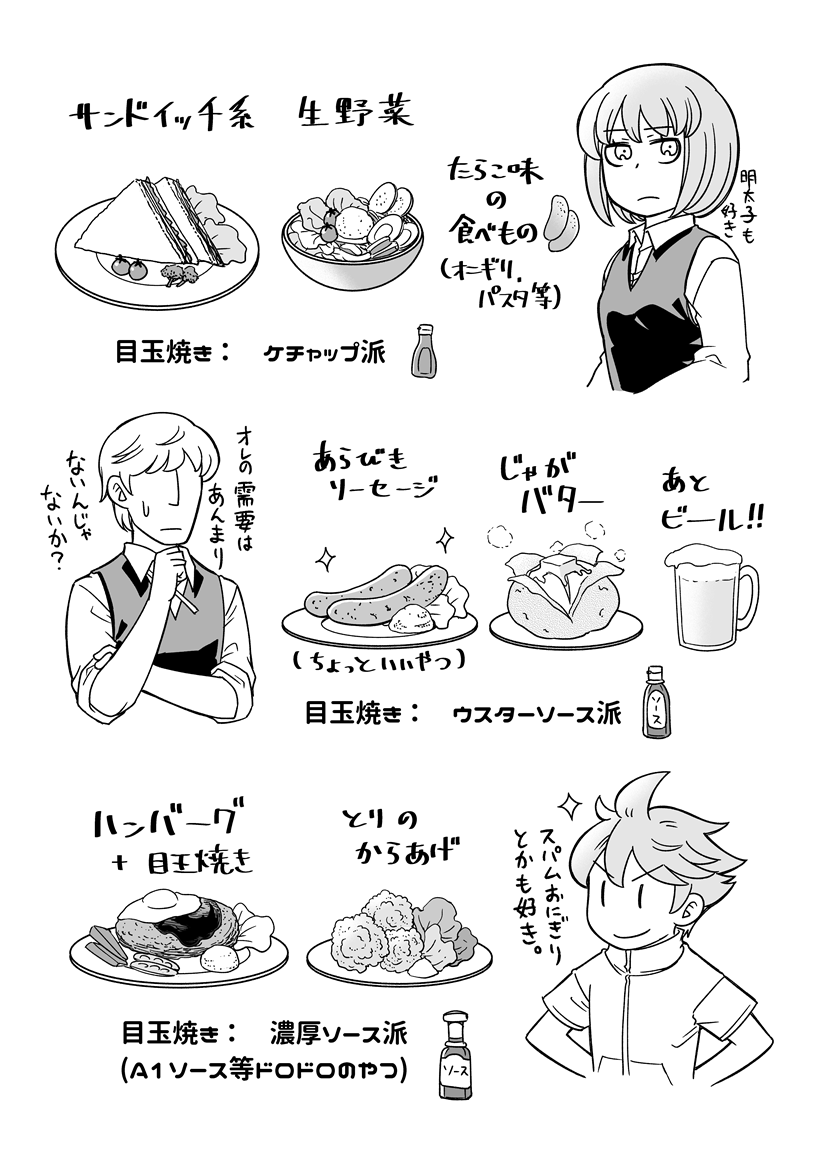 サンドイッチ系
生野菜
たらこ味
の
食べもの
(オニギリ、
パスタ等)
明太子も
好き
目玉焼き： ケチャップ派
オレの需要は
あんまり
ないんじゃ
ないか？
あらびき
ソーセージ
(ちょっといいやつ)
じゃが
バター
あと
ビール!!
目玉焼き： ウスターソース派
ソース
ハンバーグ
+目玉焼き
とりの
からあげ
スパムおにぎり
とかも好き。
目玉焼き： 濃厚ソース派
(A1ソース等ドロドロのやつ)
ソース